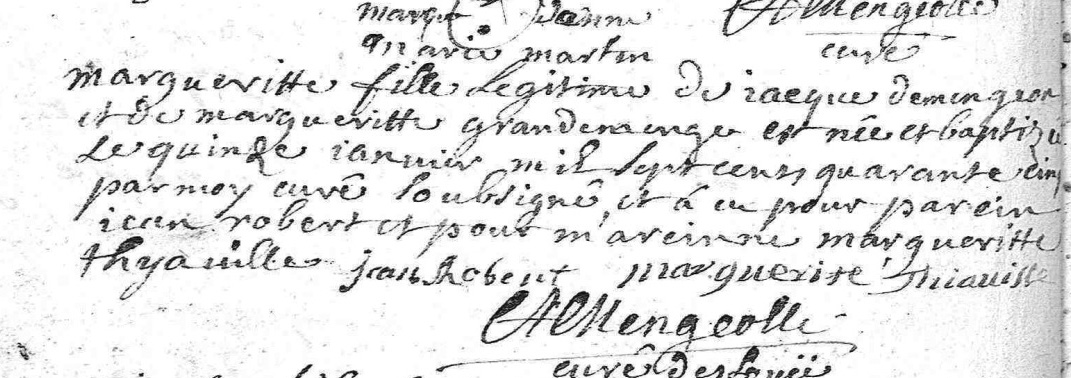 marque Danne CA Mengeolle
maria martin curé
margueritte fille legitime de iacque demengeon
et de margueritte grandemenge est née et baptizé
Le quinze ianvier mil sept cents quarante cinq
par moy curé soubsigné, et á eu pour parein
iean robert et pour mareinne margueritte
thyaville jean Robert marguerite Thiaville
CA Mengeolle
curé de